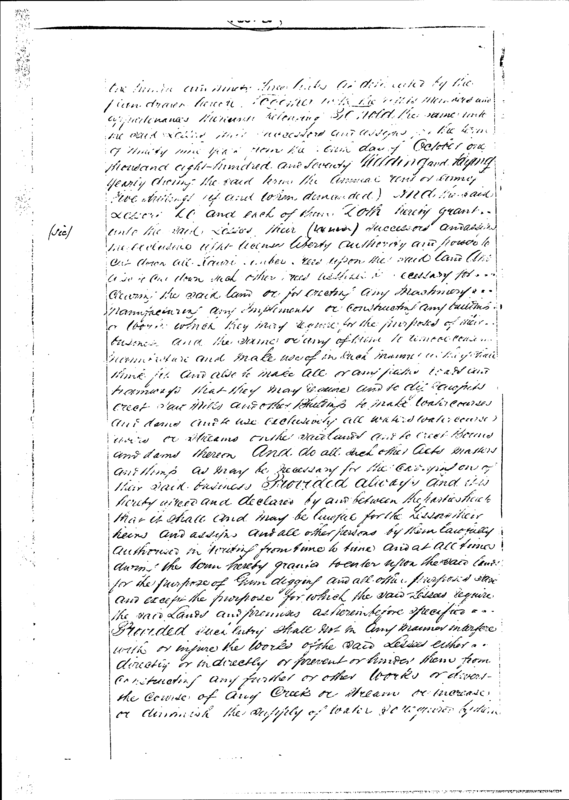 by the
plan drawn hereon Together with the rights members and
appurtenances thereunto belonging To hold the same unto
the said Lessees their successors and assigns for the term
of ninety nine years from the day of October one
thousand eight hundred and seventy Yielding and Paying
yearly during the said term the annual rent or sum of
Five shillings (if and when demanded) And the said
Lessors Do and each of them Doth hereby grant
(Sic) unto the said Lessees their (heirs) successors and assigns
an exclusive right license liberty authority and power to
cut down all Kauri timber trees upon the said land And
also to cut down such other trees necessary for
clearing the said land or for erecting any Machinery
manufacturing any implements or constructing any buildings
or works which they may require for the purposes of their
business and the same or any of them to
and make use of in such manner as they shall
think fit And also to make all or any paths roads and
tramways that they may require and to dig sawpits
erect saw mills and other buildings to make watercourses
and dams and to use exclusively all waters watercourses
or streams on the said lands and to erect
and dams thereon And do all such other acts matters
and things as may be necessary for the carrying on of
their said business Provided always and it is
hereby agreed and declared by and between the parties hereto
that it shall and may be lawful for the Lessors their
heirs and assigns and all other persons by them lawfully
authorised in writing from time to time and at all times
during the term hereby granted to enter upon the said lands
for the purpose of Gum digging and all other purposes save
and except the purpose for which the said Lessees require
the said Lands and premises as hereinbefore specified
Provided such entry shall not in any manner interfere
with or injure the Works of the said Lessees either
directly or indirectly or prevent or hinder them from
constructing any further or other Works or divert
the course of any Creek or stream or increase
or diminish the supply of water so required by them